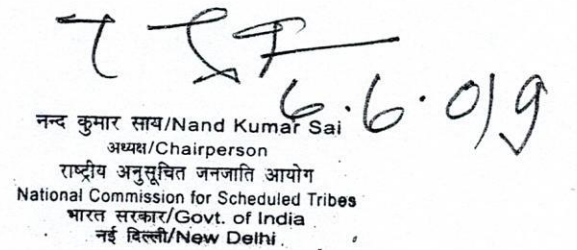 6.6.019
नन्द कुमार साय/Nand Kumar Sai
अध्यक्ष/Chairperson
राष्ट्रीय अनुसूचित जनजाति आयोग
National Commission for Scheduled Tribes
भारत सरकार/Govt. of India
नई दिल्ली/New Delhi